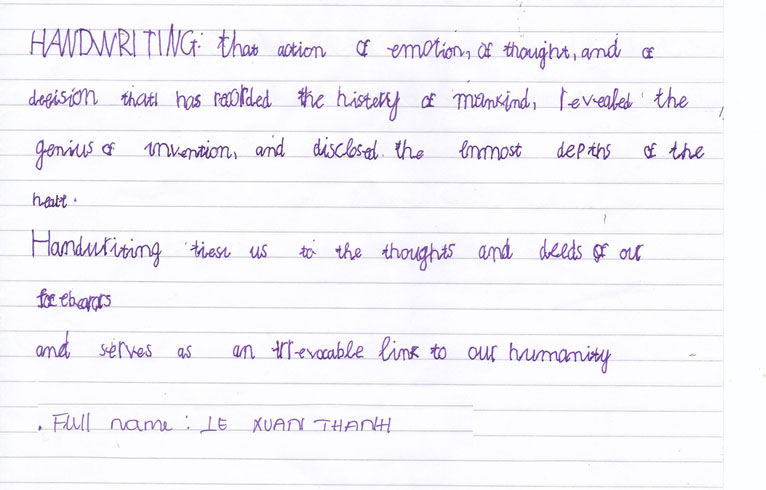 HANDWRITING: that action of emotion, of thought, and of
decision that has recorded the history of mankind, revealed the
genius of invention, and disclosed the inmost depths of the
heart.
Handwriting ties us to the thoughts and deeds of our
forebears
and serves as an irrevocable link to our humanity
. Full name : LE XUAN THANH